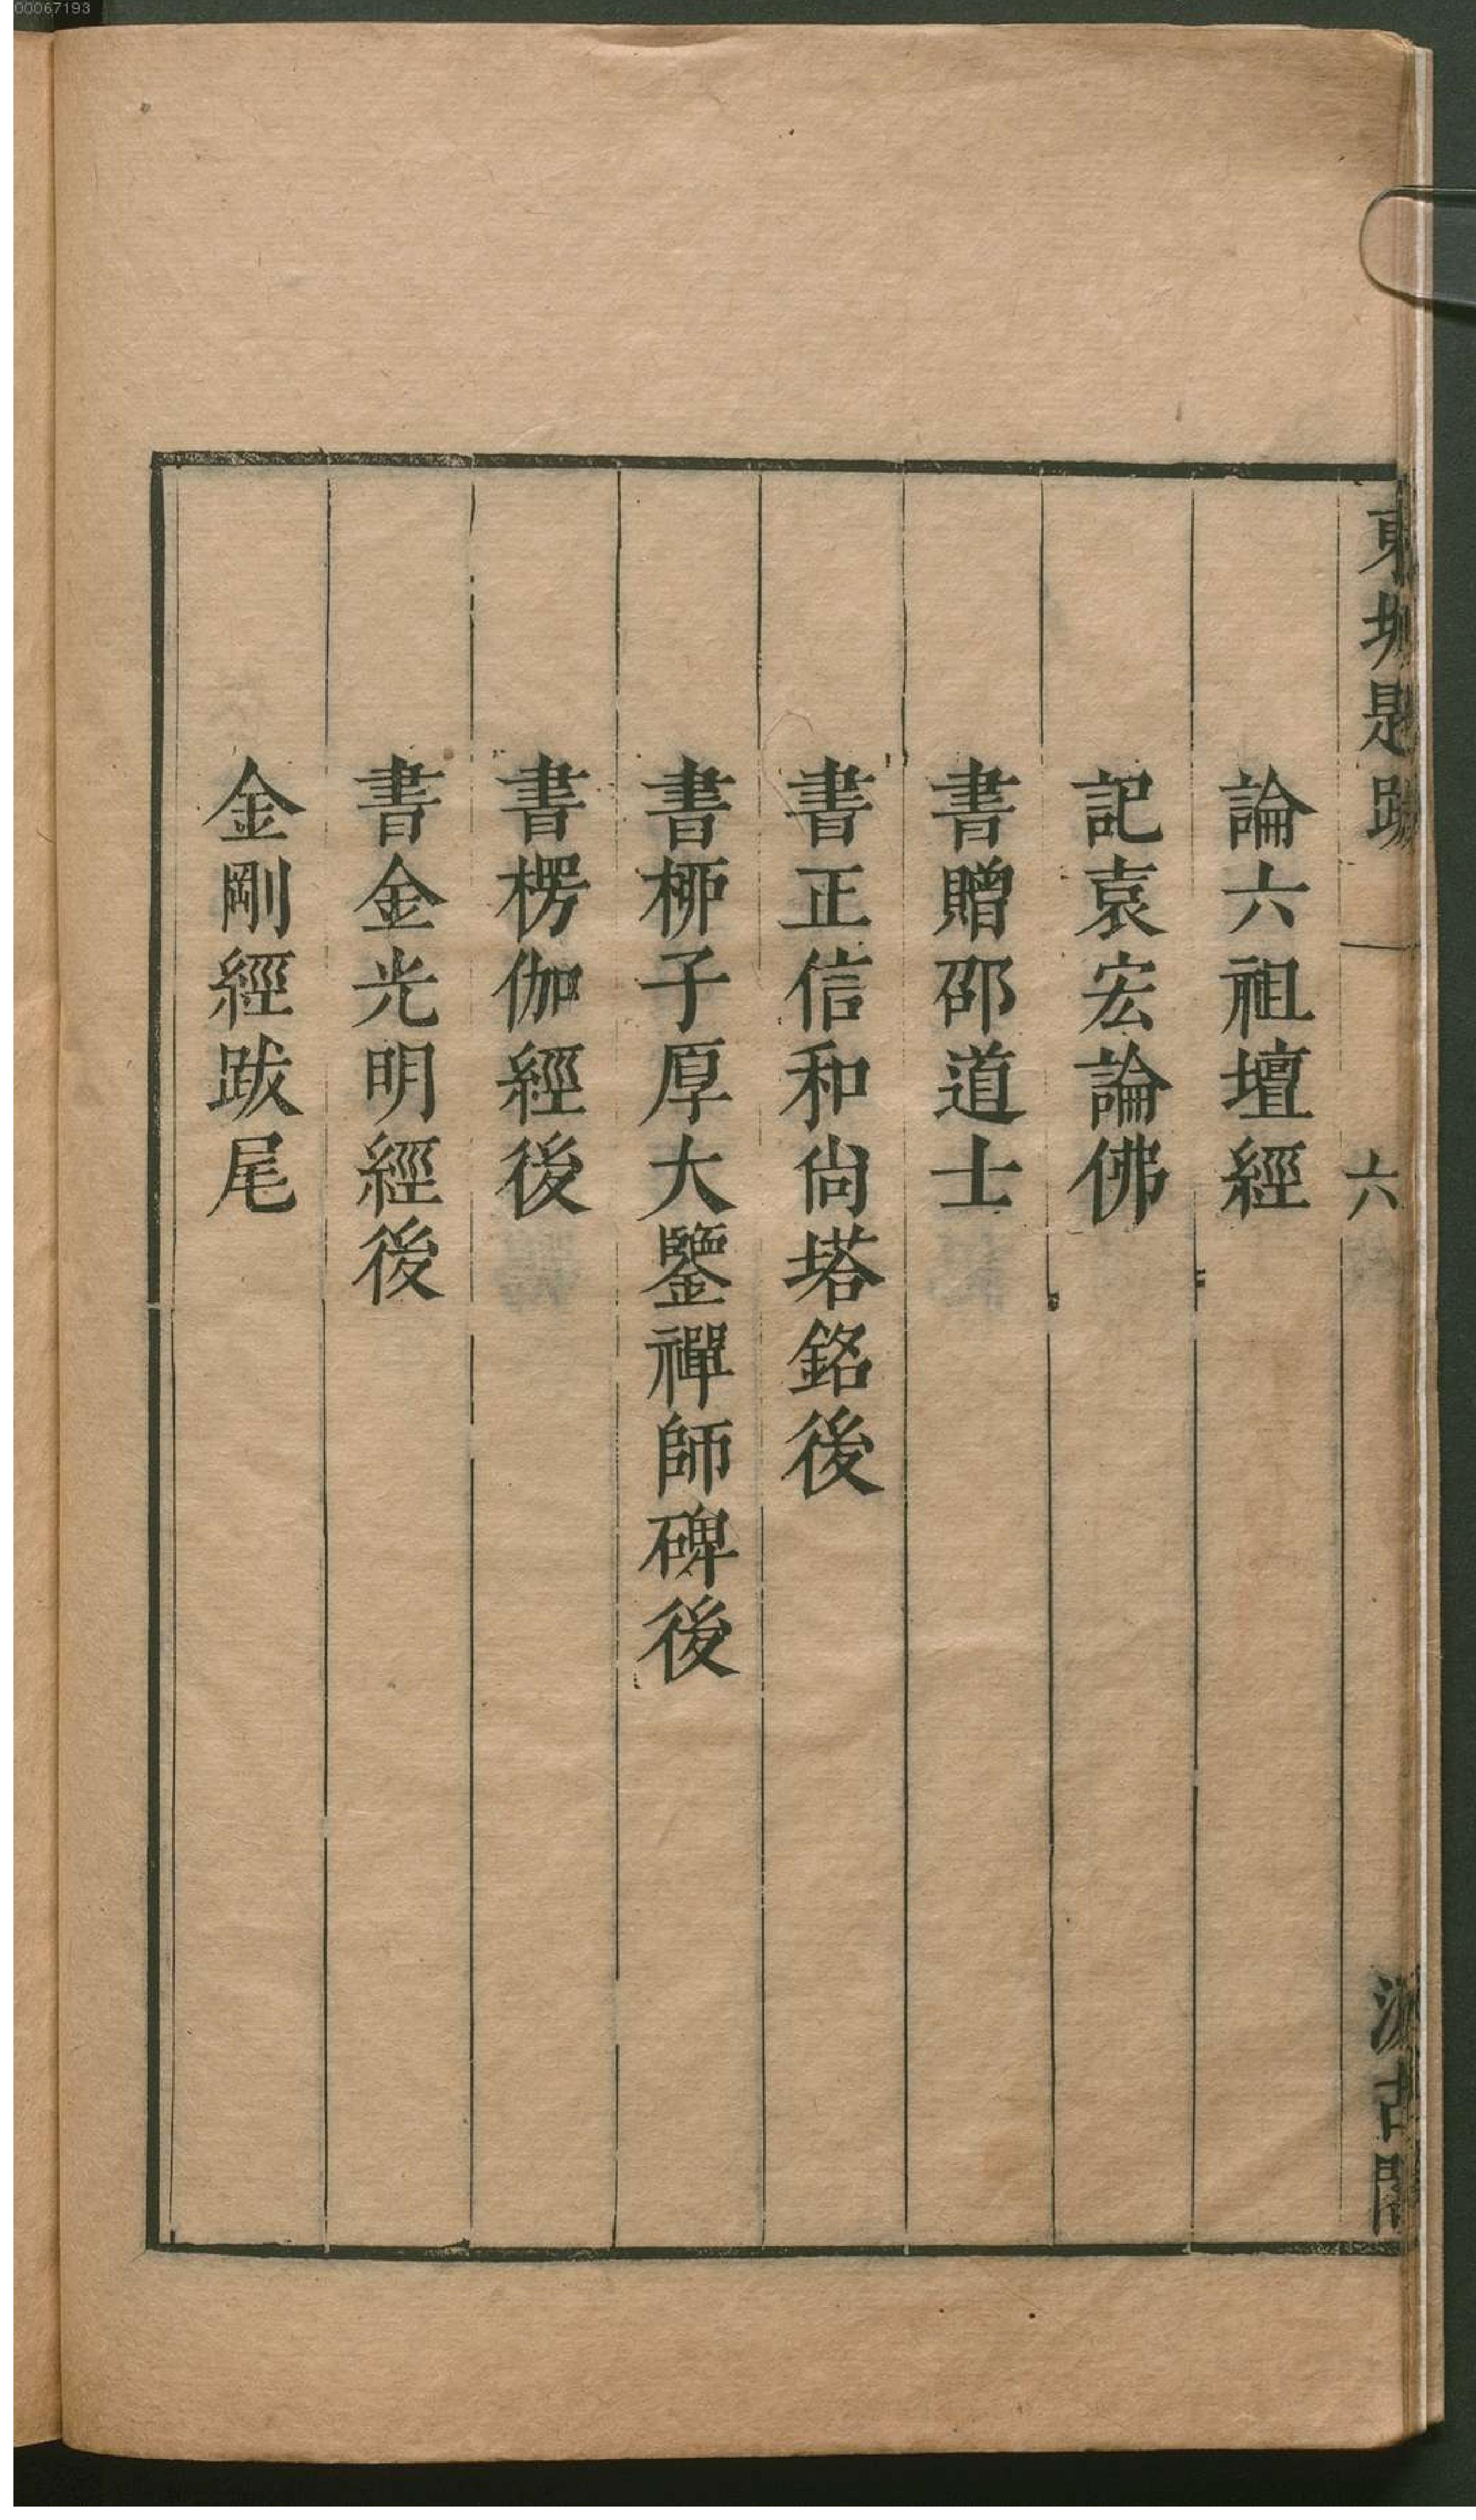 00067193
東坡題跋
六
汲古閣
論六祖壇經
記袁宏論佛
書贈邵道士
書正信和尙塔銘後
書栁子厚大鑒禪師碑後
書楞伽經後
書金光明經後
金剛經跋尾